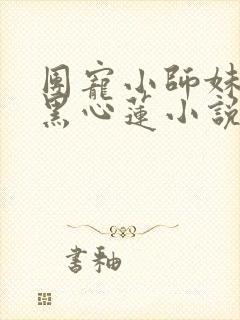 團寵小師妹
黑心蓮小說
書釉